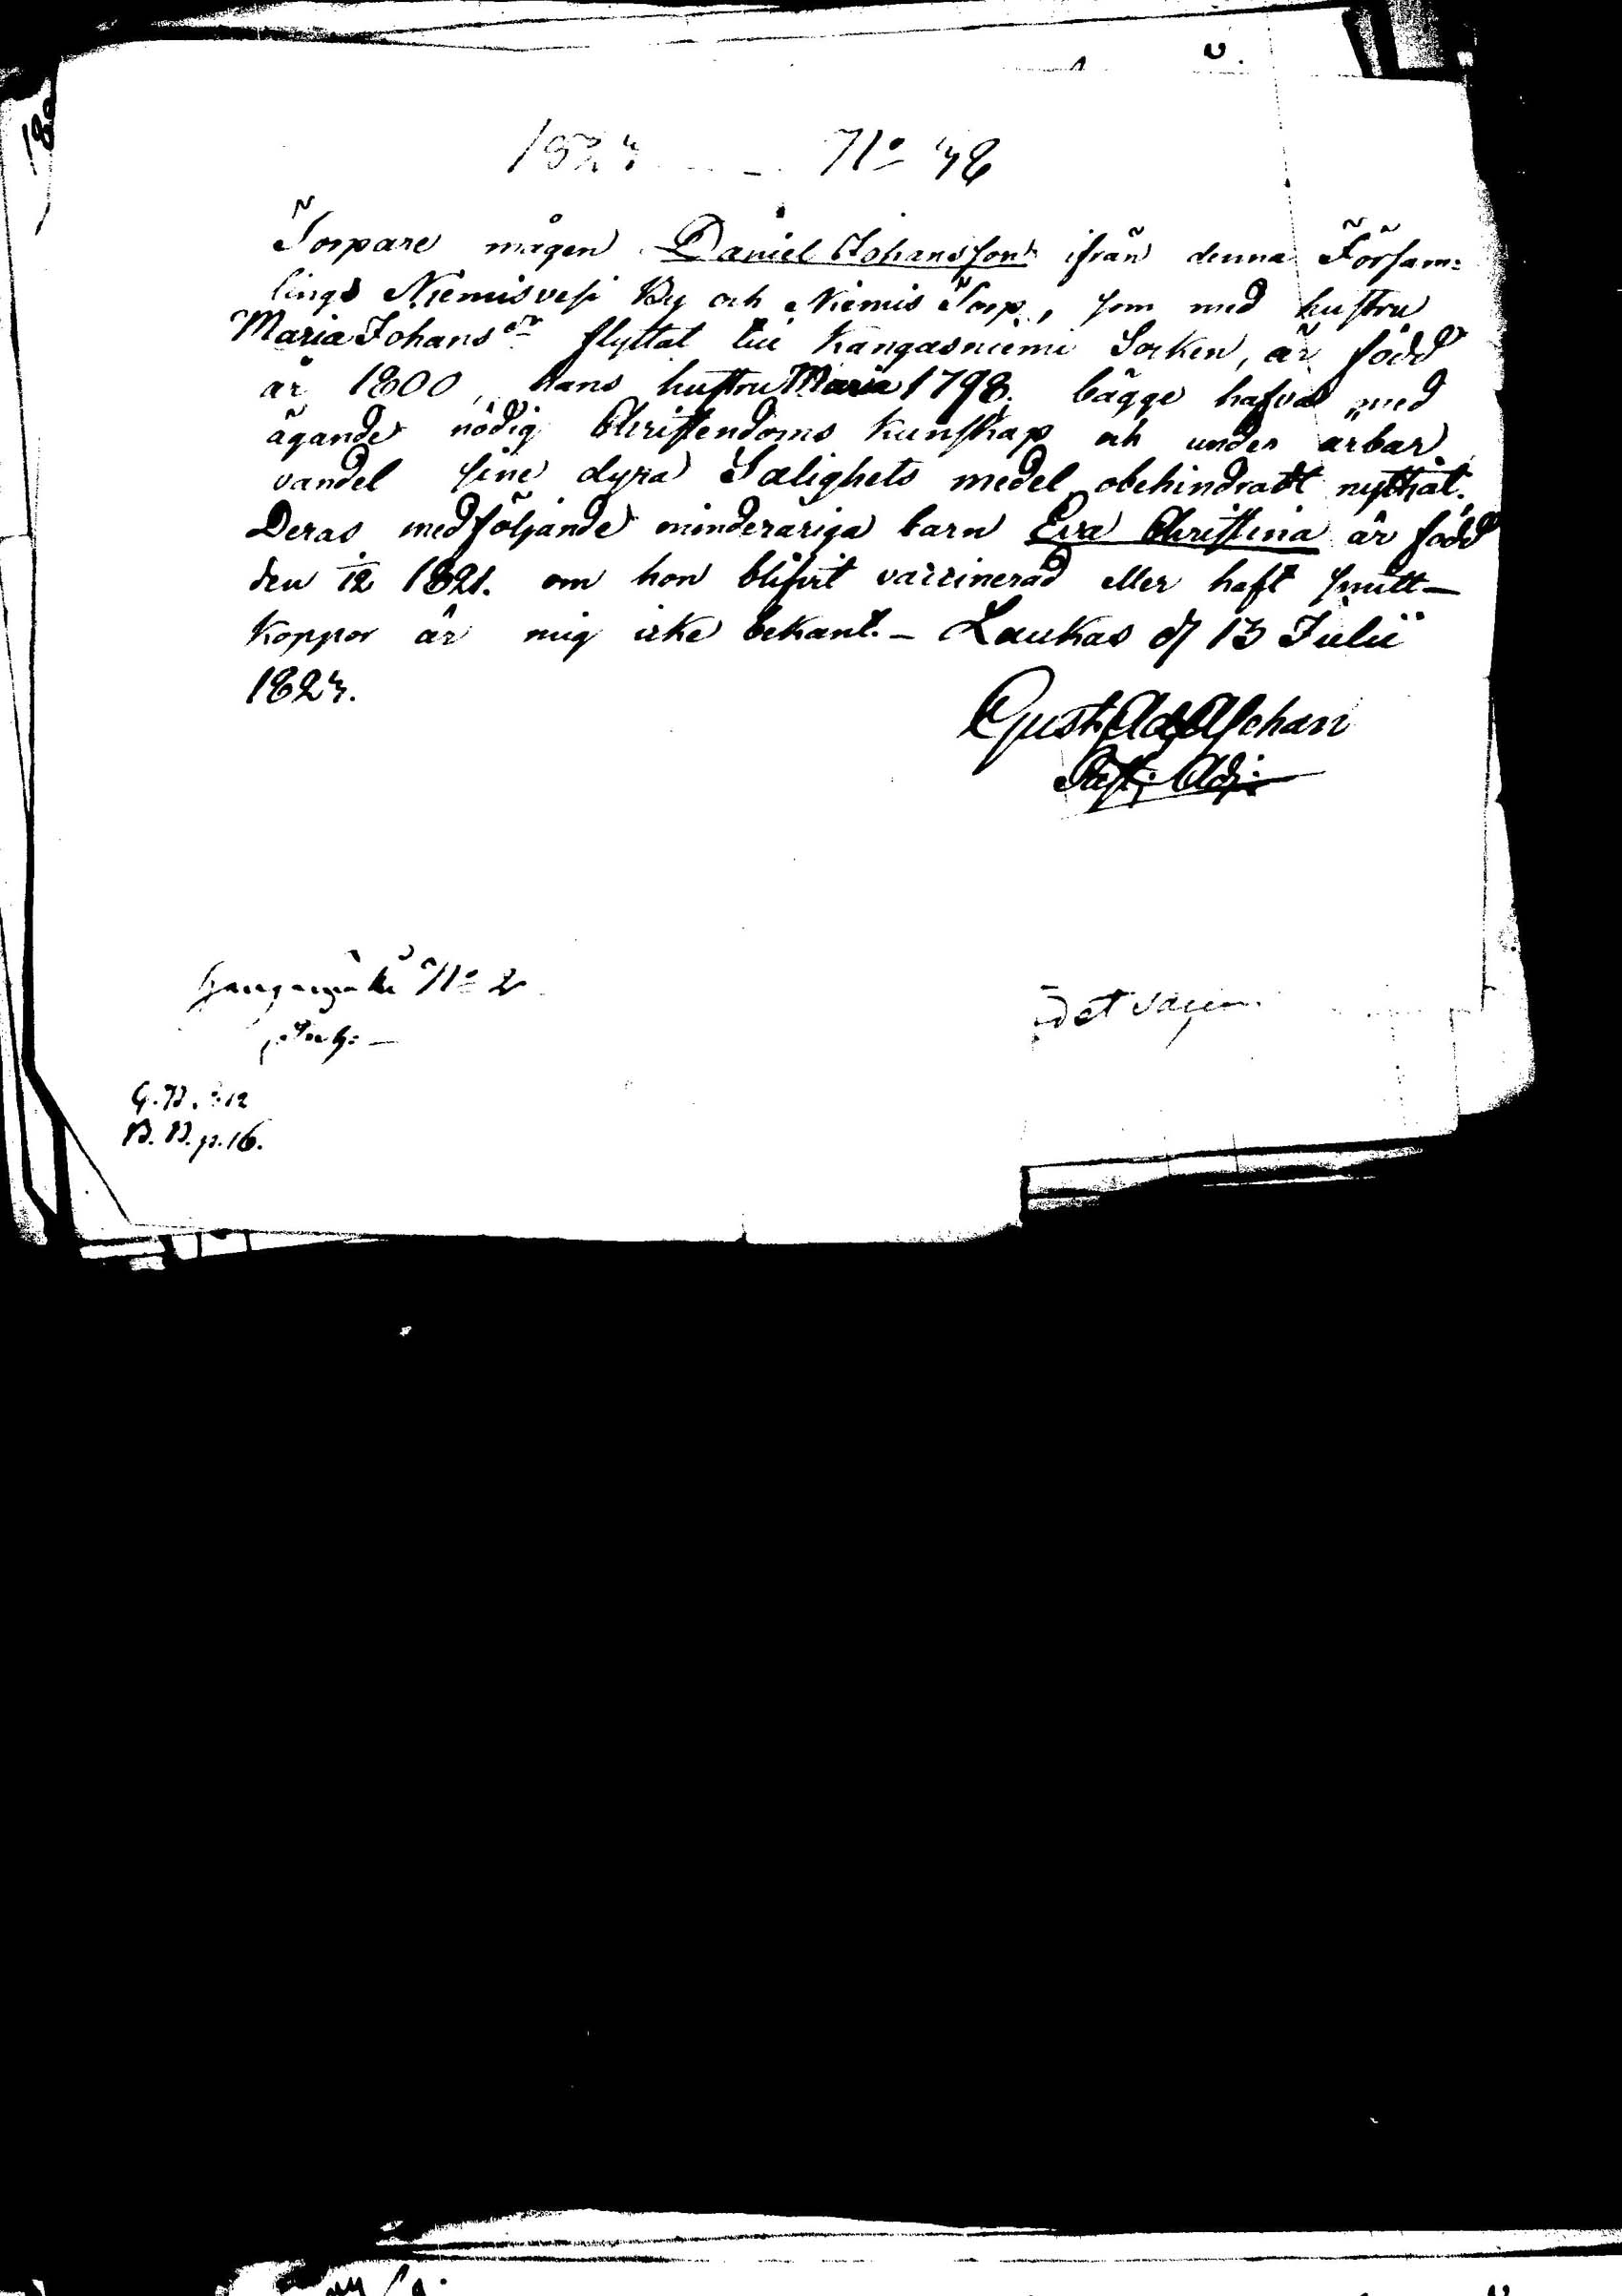 No 48
Torpare mågen Daniel Johansson ifrån denna Församlings
Niemisvesi By och Niemis Torp, som med hustru
Maria Johansdr flyttat till Kangasniemi Socken, är född
år 1800, hans hustru Maria 1798. bägge hafva med
ägande nödig Christendoms kunskap och under ärbar
vandel sine dyra Salighets medel obehindradt nyttjat.
Deras medföljande minderåriga barn Eva Christina är född
den 1/12 1821. om hon blifvit vaccinerad eller haft smitt-
koppor är mig icke bekant. – Laukas d 13 Julii
1823.
Gust. Ad. Aschan
Past: Adj:
No 2
B. B. p. 16.